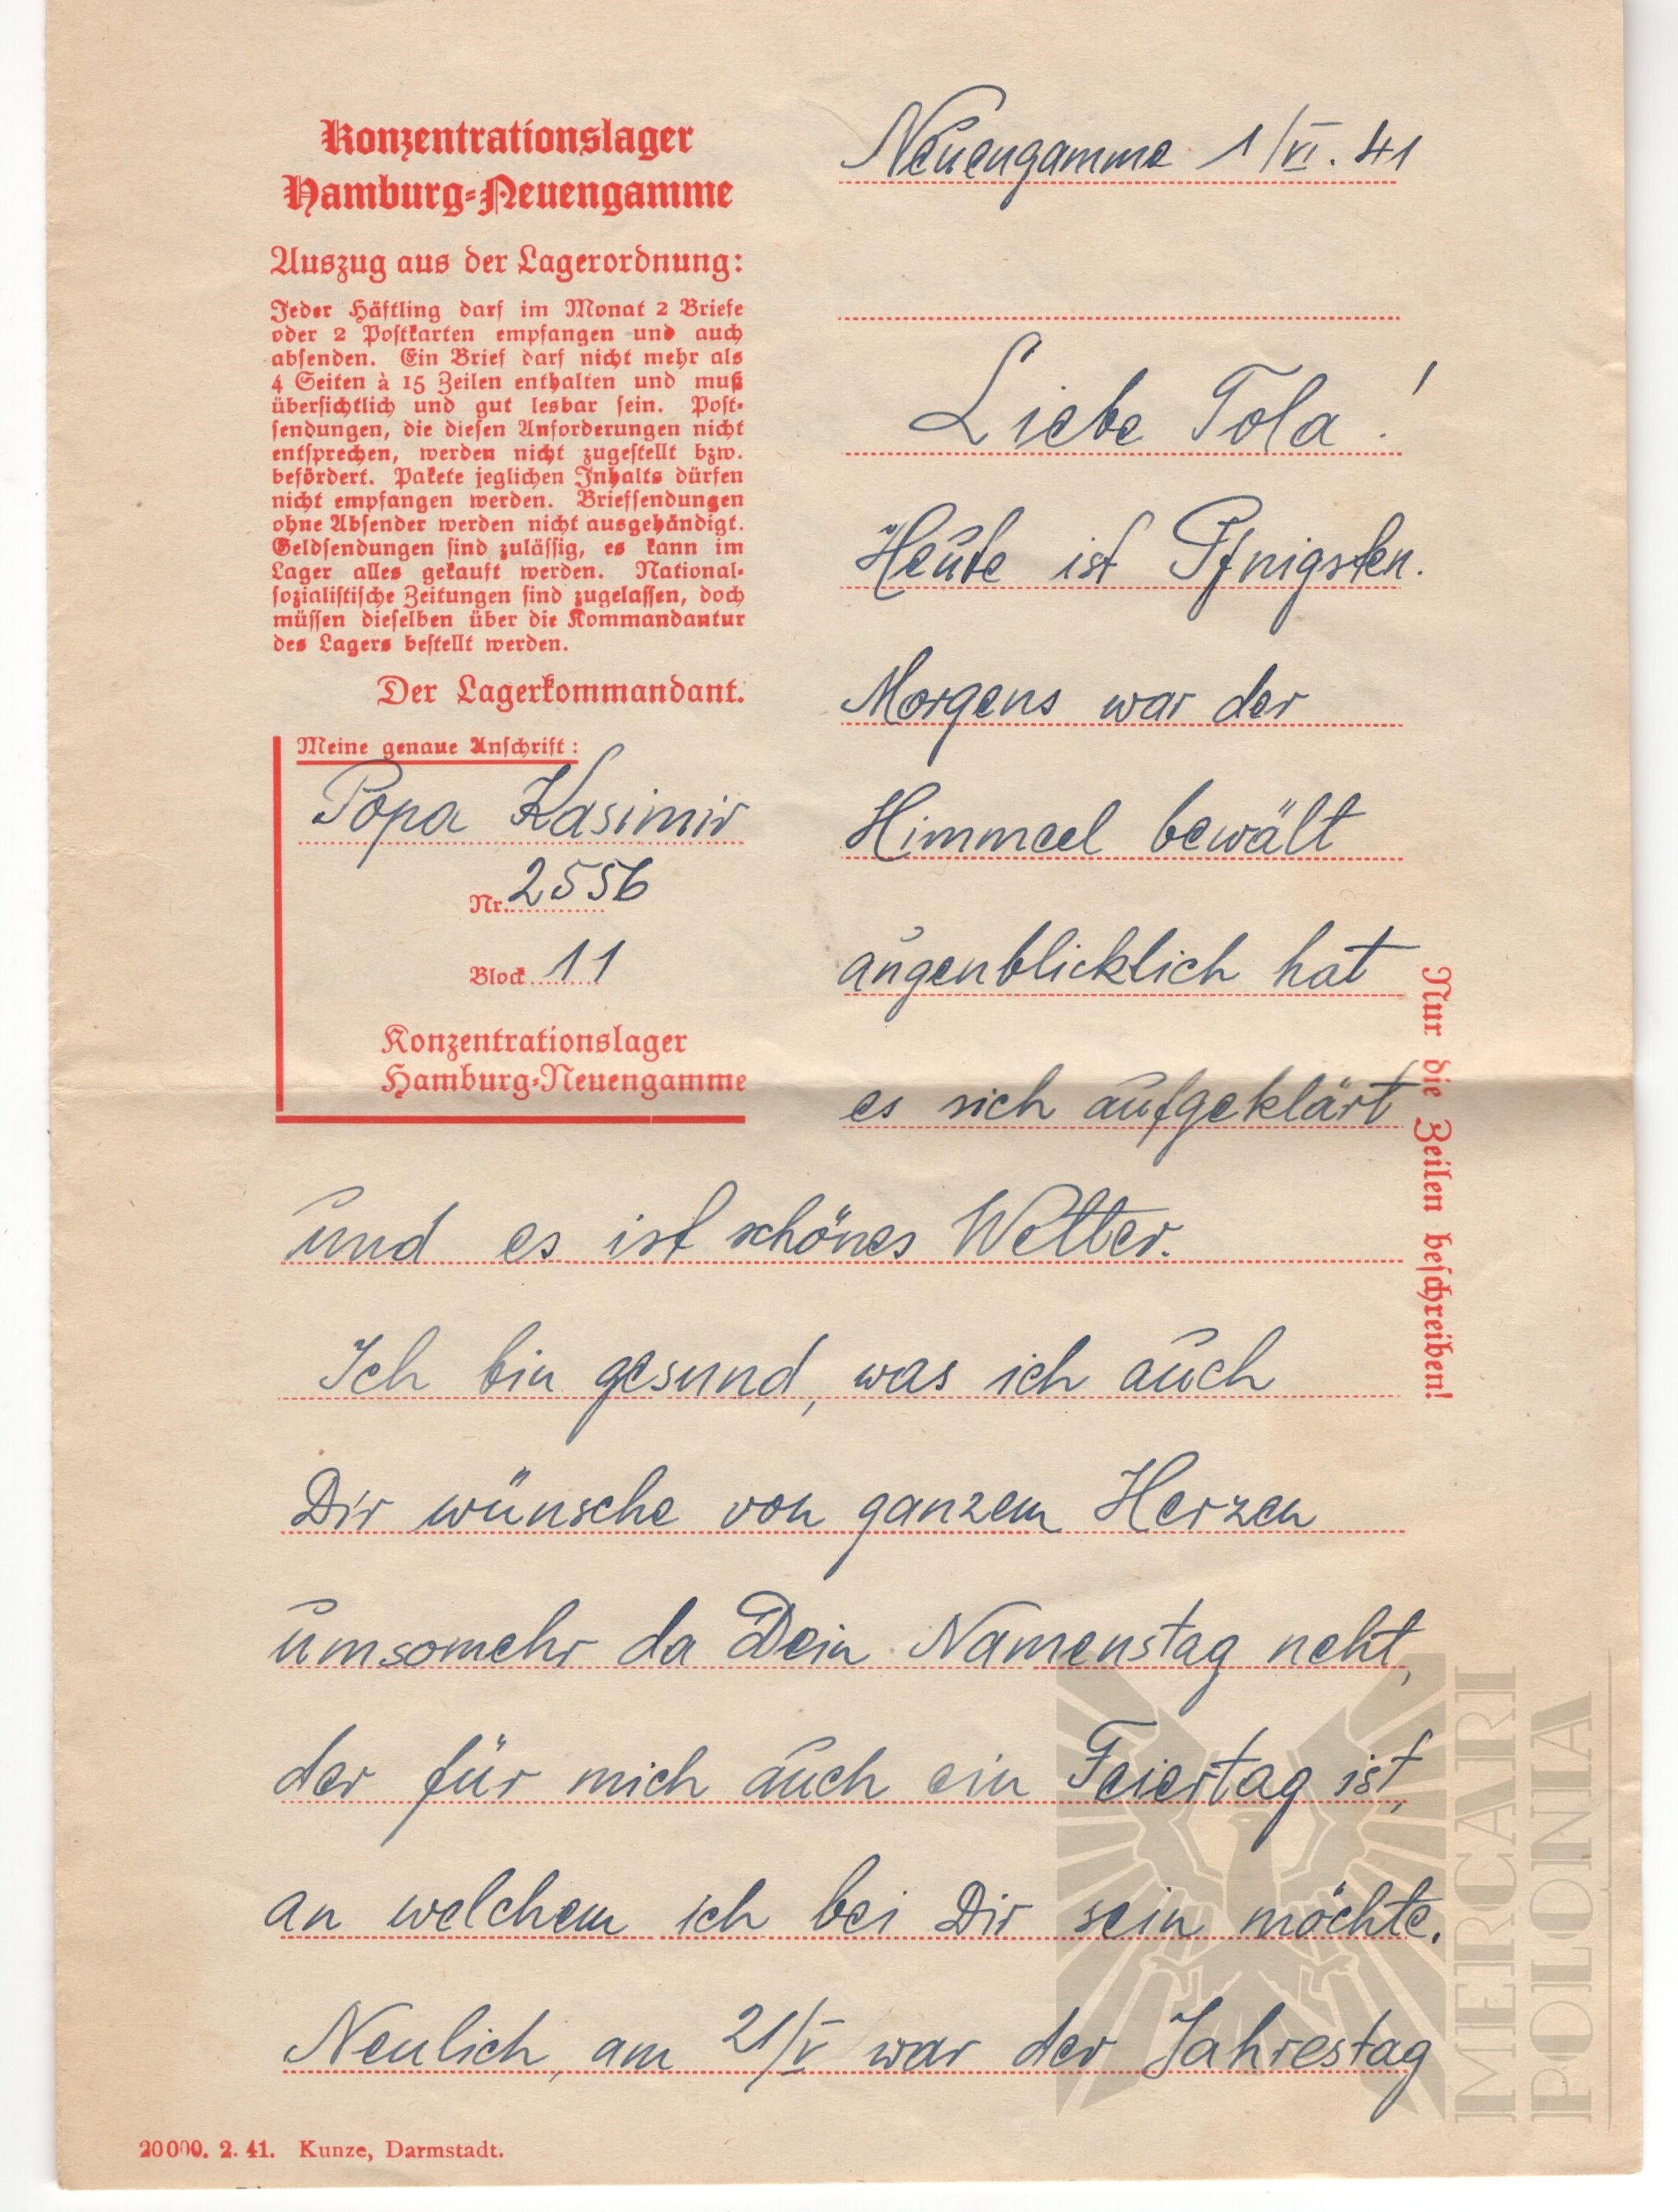 Konzentrationslager
Hamburg=Neuengamme
Auszug aus der Lagerordnung:
Jeder Häftling darf im Monat 2 Briefe
oder 2 Postkarten empfangen und auch
absenden. Ein Brief darf nicht mehr als
4 Seiten à 15 Zeilen enthalten und muß
übersichtlich und gut lesbar sein. Post-
sendungen, die diesen Anforderungen nicht
entsprechen, werden nicht zugestellt bzw.
befördert. Pakete jeglichen Inhalts dürfen
nicht empfangen werden. Briefsendungen
ohne Absender werden nicht ausgehändigt.
Geldsendungen sind zulässig, es kann im
Lager alles gekauft werden. National-
sozialistische Zeitungen sind zugelassen, doch
müssen dieselben über die Kommandantur
des Lagers bestellt werden.
Der Lagerkommandant.
Meine genaue Anschrift:
Popa Kasimir
Nr. 2556
Block 11
Konzentrationslager
Hamburg=Neuengamme
Neuengamme 1/VI. 41
Liebe Tola!
Heute ist Pfnigsten.
Morgens war der
Himmeel bewält
augenblicklich hat
es sich aufgeklärt
und es ist schönes Wetter.
Ich bin gesund, was ich auch
Dir wünsche von ganzem Herzen
umsomehr da Dein Namenstag neht,
der für mich auch ein Feiertag ist,
an welchem ich bei Dir sein möchte.
Neulich, am 21/V war der Jahrestag
Nur die Zeilen beschreiben!
20000. 2. 41. Kunze, Darmstadt.
MERCARI
POLONIA